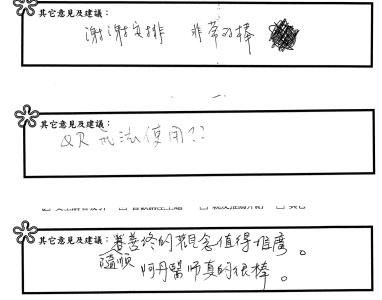 其它意見及建議：
謝謝安排 非常棒
其它意見及建議：
QR 無法使用??
其它意見及建議：善終的觀念值得推廣。
隨順
阿丹醫師真的很棒。